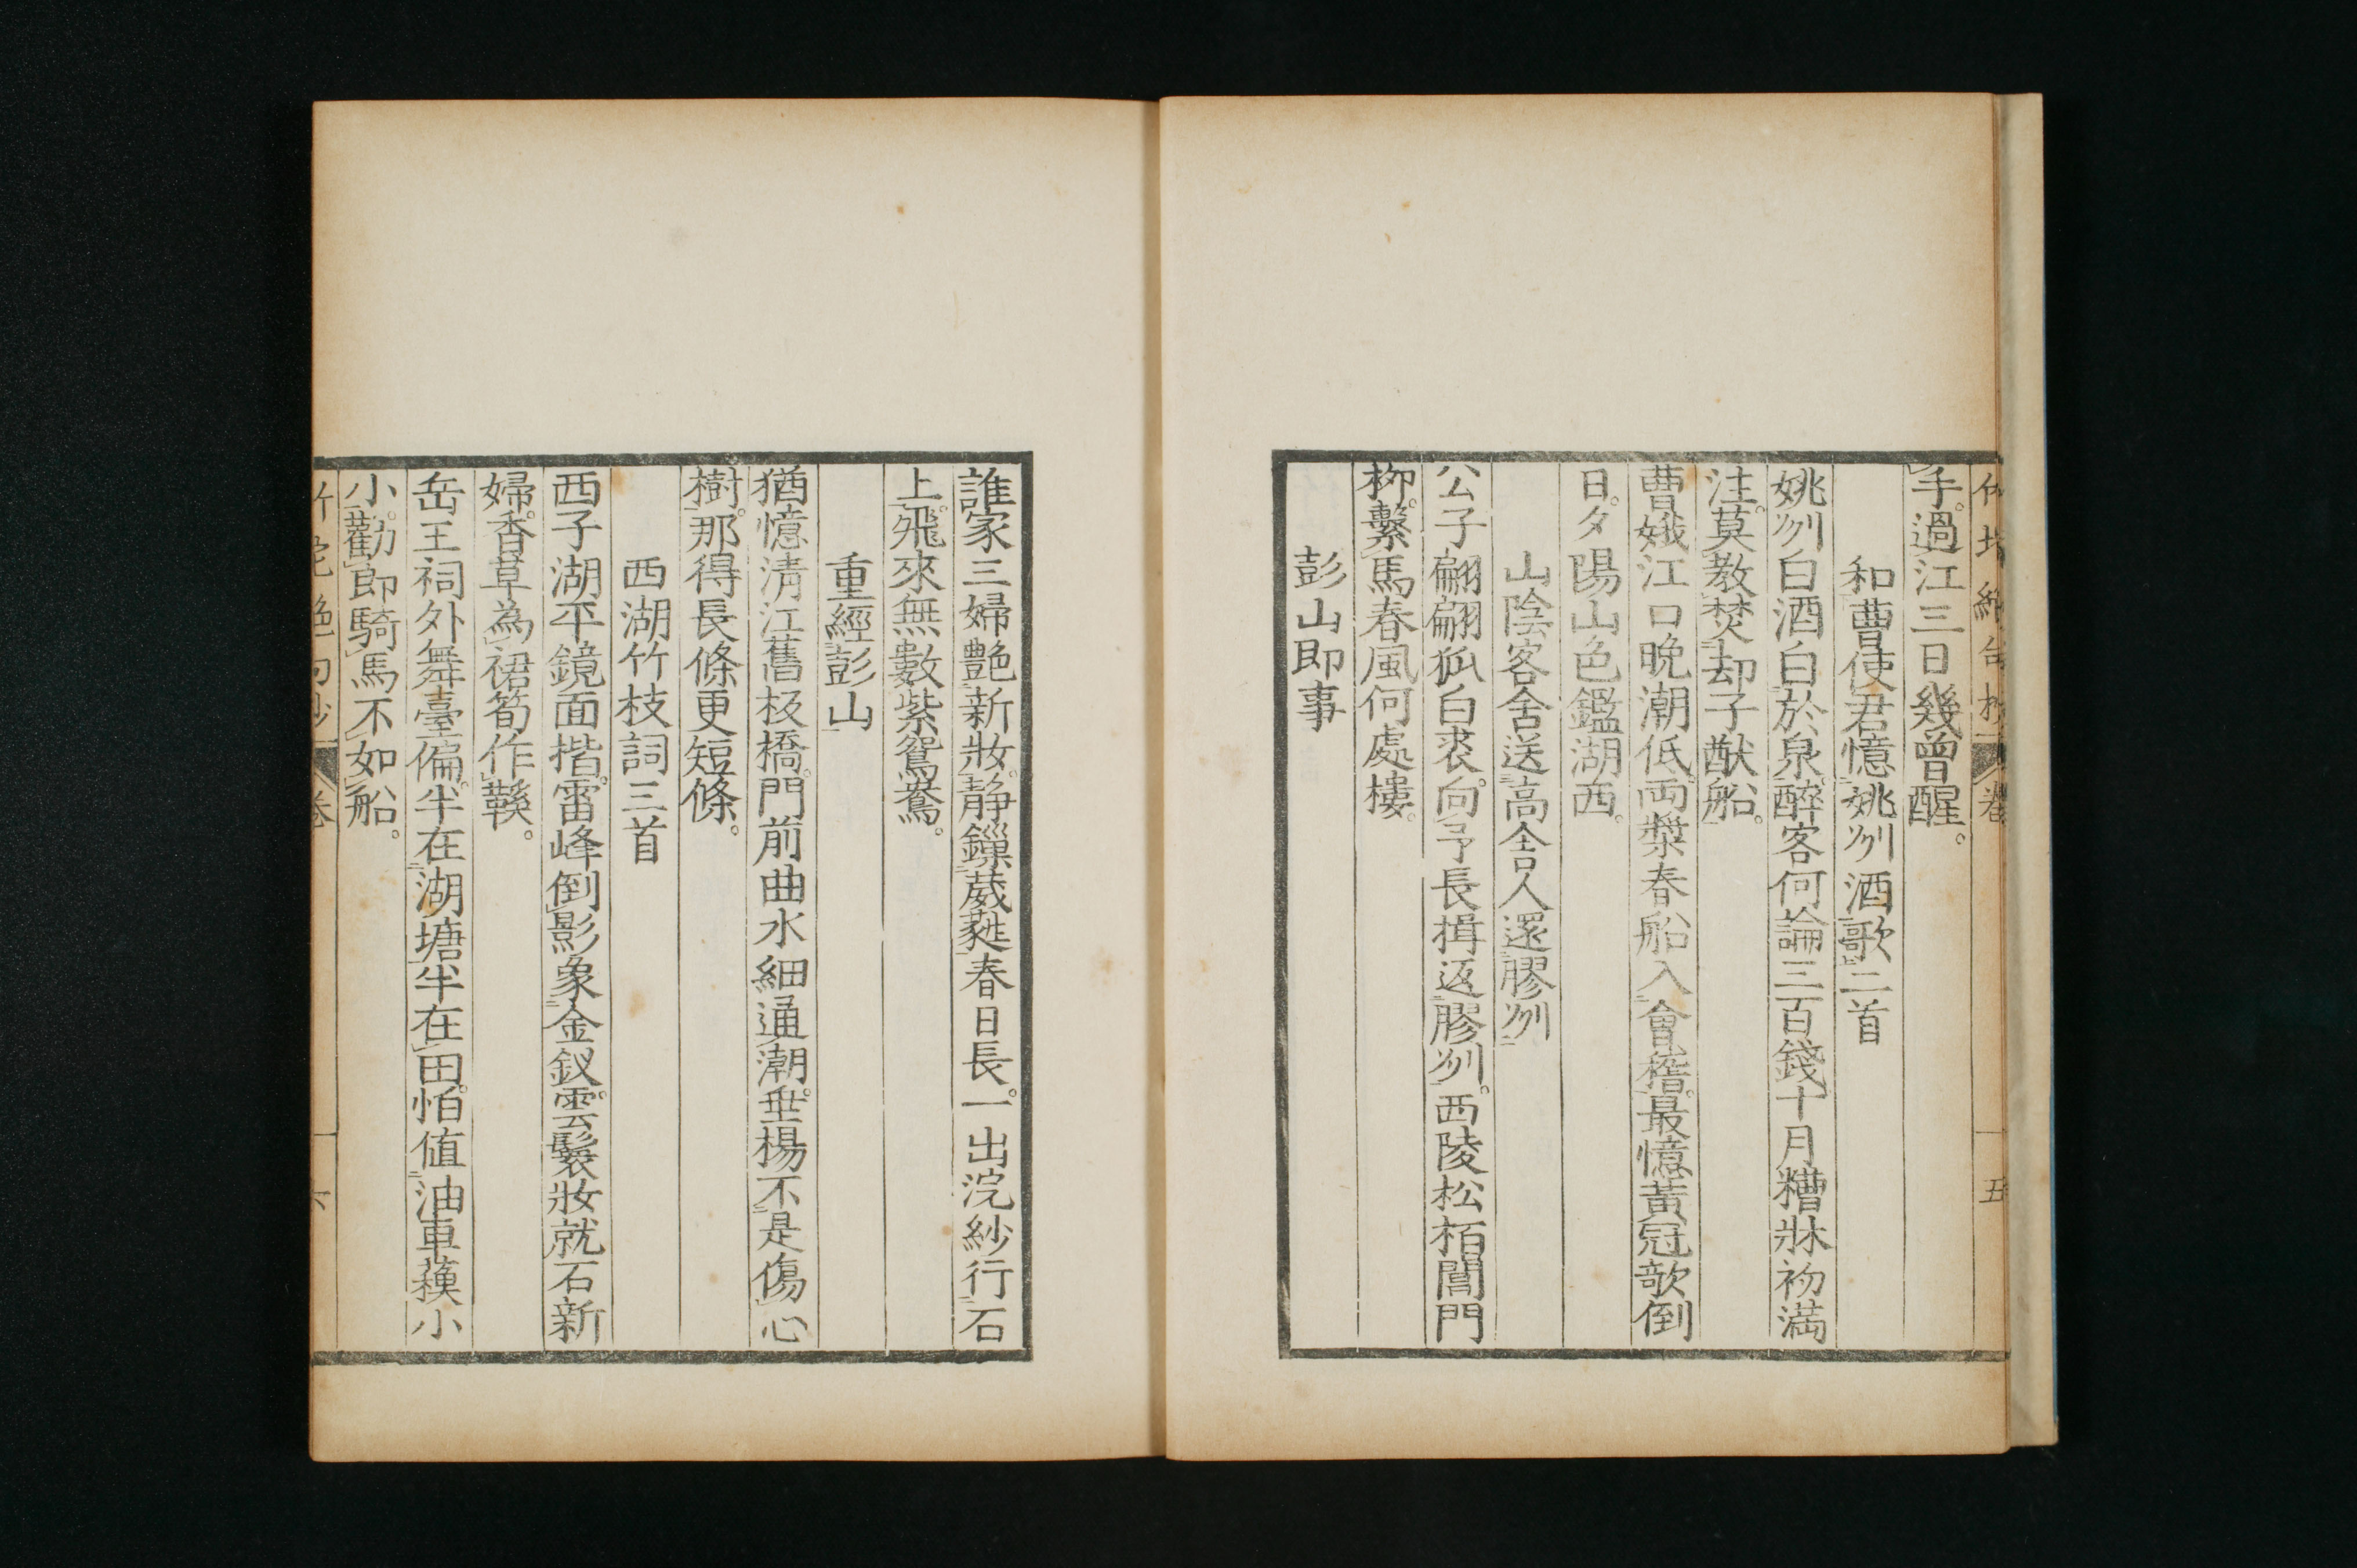 手。過江三日幾曾醒。
和曹使君憶姚州酒歌二首
姚州白酒白於泉。醉客何論三百錢。十月糟牀初滿
注。莫教焚却子猷船。
曹娥江口晚潮低。兩槳春船入會稽。最憶黃冠歌倒
日。夕陽山色鑑湖西。
山陰客舍送高舍人還膠州
公子翩翩狐白裘。向予長揖返膠州。西陵松栢閶門
栁。繫馬春風何處樓。
彭山即事
五
誰家三婦艶新妝。靜鏁葳蕤春日長。一出浣紗行石
上。飛來無數紫鴛鴦。
重經彭山
猶憶淸江舊板橋。門前曲水細通潮。垂楊不是傷心
樹。那得長條更短條。
西湖竹枝詞三首
西子湖平鏡面揩。雷峰倒影象金釵。雲鬟妝就石新
婦。香草為裙筍作鞵。
岳王祠外舞臺偏。半在湖塘半在田。怕值油車蘓小
小。勸郎騎馬不如船。
竹垞絶句鈔 卷